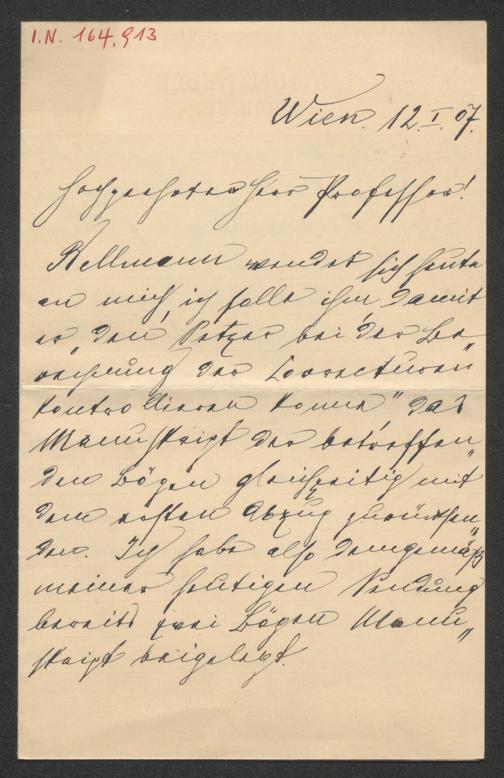 I.N. 164.913
Wien. 12.I.07.
Hochgeehrter Herr Professor!
Kellmann wendet sich heute
an mich ich solle ihm „damit
er den Setzer bei der Be„
rechnung der Correcturen
kontrollieren könne" das
Manuskript der betreffen„
den Bögen gleichzeitig mit
dem ersten Abzug zurücksen„
den. Ich habe also demgemäß
meiner heutigen Sendung
bereits zwei Bögen Manu„
skript beigelegt.